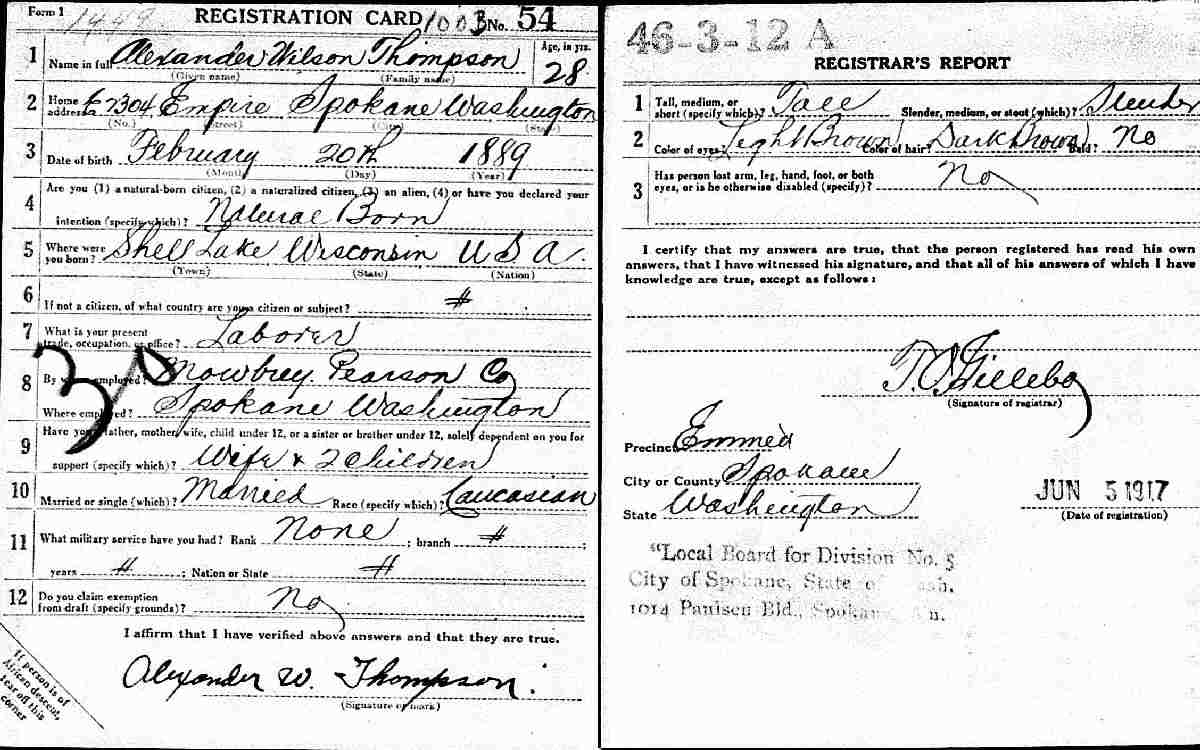 Form 1 1449 REGISTRATION CARD 1003 No. 54
1 Name in full Alexander Wilson Thompson Age, in yrs.
(Given name) (Family name) 28
2 Home address E 2304 Empire Spokane Washington
(No.) (Street) (City) (State)
3 Date of birth February 20th 1889
(Month) (Day) (Year)
4 Are you (1) a natural-born citizen, (2) a naturalized citizen, (3) an alien, (4) or have you declared your
intention (specify which)? Natural Born
5 Where were you born? Shell Lake Wisconsin U S A.
(Town) (State) (Nation)
6 If not a citizen, of what country are you a citizen or subject? #
7 What is your present trade, occupation, or office? Laborer
8 By whom employed? Mowbrey Pearson Co
Where employed? Spokane Washington
9 Have you a father, mother, wife, child under 12, or a sister or brother under 12, solely dependent on you for
support (specify which)? Wife & 2 children
10 Married or single (which)? Married Race (specify which)? Caucasian
11 What military service have you had? Rank None ; branch # ;
years # ; Nation or State #
12 Do you claim exemption from draft (specify grounds)? No
I affirm that I have verified above answers and that they are true.
Alexander W. Thompson.
(Signature or mark)
If person is of
African descent,
tear off this
corner
46-3-12 A
REGISTRAR'S REPORT
1 Tall, medium, or short (specify which)? Tall Slender, medium, or stout (which)? Slender
2 Color of eyes? Light Brown Color of hair? Dark Brown Bald? No
3 Has person lost arm, leg, hand, foot, or both
eyes, or is he otherwise disabled (specify)? No
I certify that my answers are true, that the person registered has read his own
answers, that I have witnessed his signature, and that all of his answers of which I have
knowledge are true, except as follows:
(Signature of registrar)
Precinct
City or County Spokane
State Washington
JUN 5 1917
(Date of registration)
"Local Board for Division No.
City of Spokane, State of
1014 Paulsen Bld., Spokane,